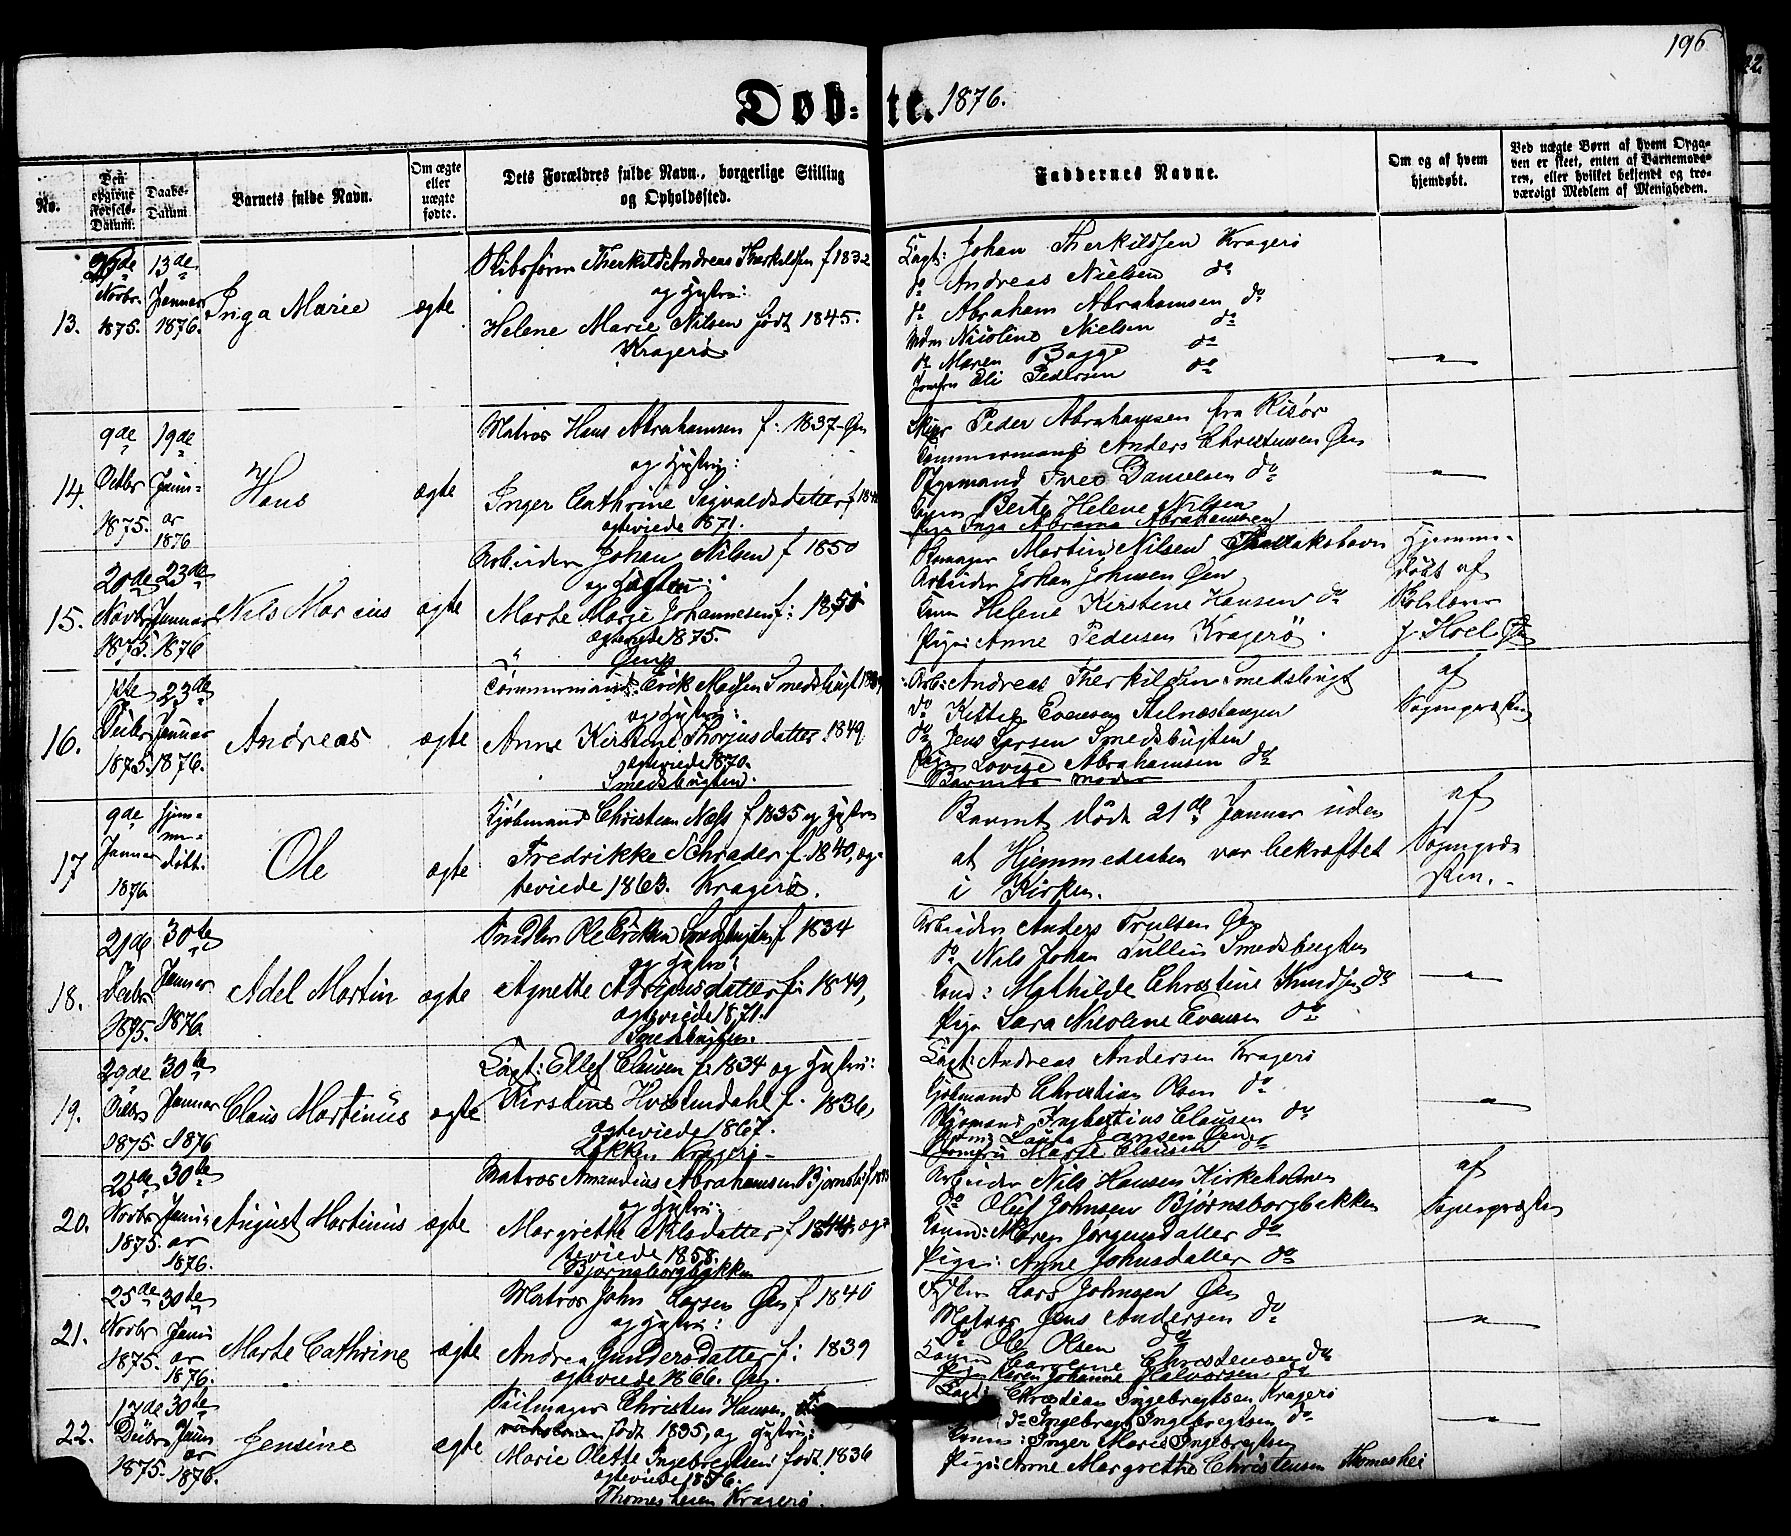 196
Døb-te. 1876.
No.
Den opgivne Fødsels-Datum.
Daabs-Datum.
Barnets fulde Navn.
Om ægte eller uægte fødte.
Dets Forældres fulde Navn, borgerlige Stilling og Opholdssted.
Faddernes Navne.
Om og af hvem hjemdøbt.
Ved uægte Børn af hvem Opgaven er skeet, enten af Barnemoderen, eller hvilket bekjendt og troværdigt Medlem af Menigheden.
13.
Novbr. 1875.
13de Januar 1876.
Inga Marie
ægte
Therkild Andreas Therkildsen f 1832
og Hustru:
Helene Marie Nilsen født 1845.
Kragerø
Johan Therkildsen Kragerø
do Andreas Nielsen do
do Abraham Abrahamsen do
Nicoline Nielsen do
do Maren Bagge do
Jomfru Eli Pedersen do
14.
9de Octbr 1875.
19de Januar 1876
Hans
ægte
Matros Hans Abrahamsen f. 1837 Øen
og Hustru:
Inger Cathrine Sigvaldsdatter
ægteviede 1871.
Peder Abrahamsen fra Risør
Tømmermand Anders Christensen Øen
Styrmand Iver Danielsen do
Berte Helene Nilsen
Pige Inga Abrahamsen
15.
20de Novbr 1875.
23de Januar 1876
Nils Marius
ægte
Arbeider Johan Nilsen f 1850
og Hustru:
Marte Marie Johannesen f: 1851
ægteviede 1875.
Øen
Martin Nilsen
Arbeider Johan Johnsen Øen
Helene Kirstine Hansen do
Pige: Anne Pedersen Kragerø
Hjemme-
døbt af
Hoel Øen
16.
1ste Decbr 1875.
23de Januar 1876.
Andreas
ægte
Tømmermand Erik Madsen Smedsbugt
og Hustru:
Anne Kirstine Thorjusdatter 1849
ægteviede 1870.
Smedsbugten.
Arb: Andreas Therkildsen Smedsbugt
do Kittil Evensen Stilnæstangen
do Jens Larsen Smedsbugten
Pige Lovise Abrahamsen do
Barnets moder
af
Sognepræsten
17
9de Januar 1876
Hjemmedøbt.
Ole
ægte
Kjøbmand Christian Næss f 1835 og Hustru
Fredrikke Schrader f. 1840, æg-
teviede 1863. Kragerø.
Barnet døde 21de Januar uden
at Hjemmedaaben var bekræftet
i Kirken.
af
Sognepræ-
sten.
18.
21de Decbr 1875.
30te Januar 1876.
Adel Martin
ægte
Snedker Ole Eriksen Smedsbugten f 1834
og Hustru:
Agnette f: 1849,
ægteviede 1871.
Smedsbugten.
Arbeider Anders Trulsen Øen
do Nils Johan Tullius Smedsbugten
Mathilde Christine Knudsen do
Pige Sara Nicoline Evensen do
19.
29de Octbr 1875.
30te Januar 1876
Claus Martinus
ægte
Ellef Clausen f: 1834 og Hustru:
Kirstine Hvistendahl f. 1836,
ægteviede 1867.
Løkken Kragerø
Andreas Andersen Kragerø
Kjøbmand Christian Olsen do
Styrmand Ingbertinus Clausen do
Laura Jansen Øen
Jomfru Marte Clausen do
20.
25de Novbr 1875.
30te Januar 1876.
August Martinus
ægte
Matros Amandius Abrahamsen
og Hustru:
Margrethe Nilsdatter f 1844 æg-
teviede 1858.
Bjørnsborgbakken
Arbeider Nils Hansen Kirkeholmen
do Oluf Johnsen Bjørnsborgbakken
Maren Jørgensdatter do
Pige: Anne Johnsdatter do
af
Sognepræsten
21.
25de Novbr 1875.
30te Januar 1876.
Marte Cathrine
ægte
Matros John Larsen Øen f 1840
og Hustru:
Andrea Gundersdatter f: 1839
ægteviede 1866. Øen.
Lars Johnsen Øen
Matros Jens Andersen do
do Ole Olsen do
Christensen do
Pige Karen Johanne Halvorsen do
22.
17de Decbr 1875.
30te Januar 1876.
Jensine
ægte
Seilmager Christen Hansen
født 1835, og Hustru:
Marie Olette Ingebregtsen født 1836
ægteviede 1856.
Thomesheien Kragerø.
Christian Ingebregtsen Kragerø
do Ingebregt Ingebregtsen do
Inger Marie Ingebregtsen
Pige: Anne Margrethe Christensen Thomeshei